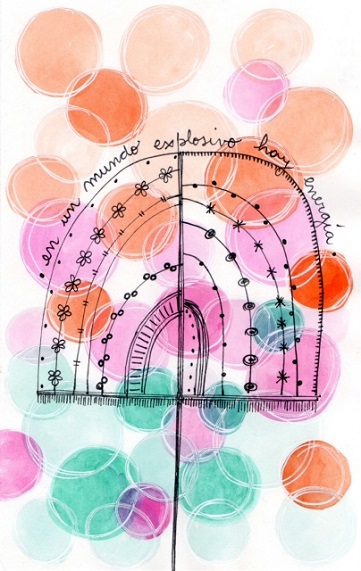 en un mundo explosivo hay energía.